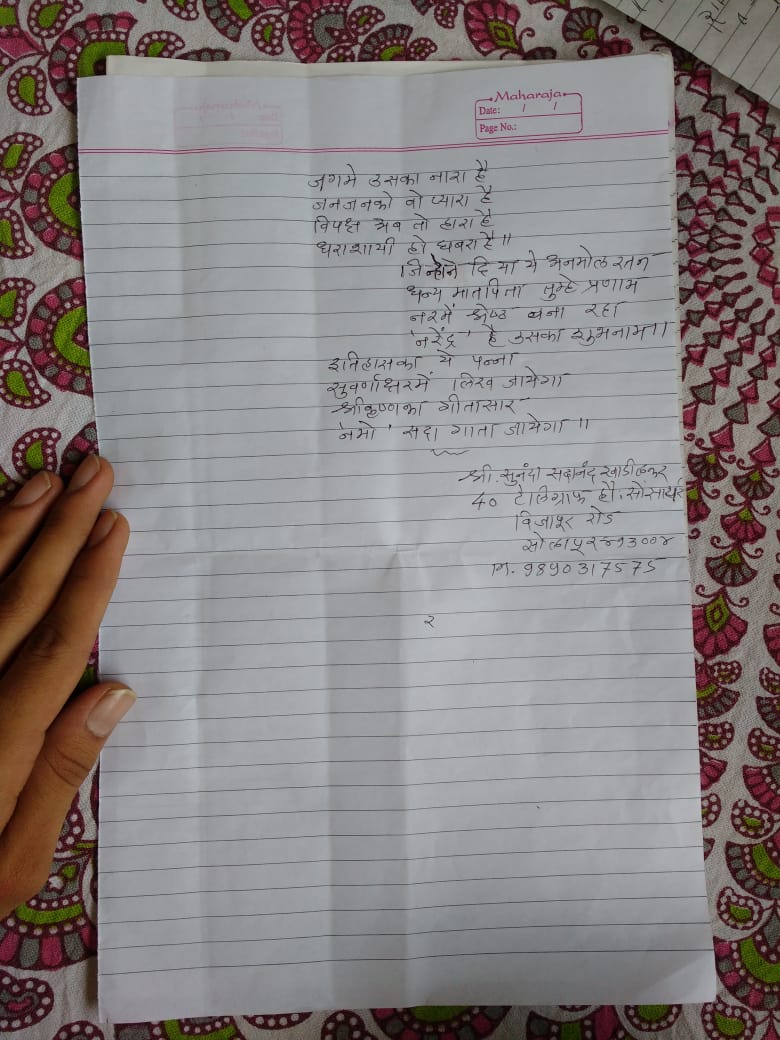 Maharaja
Date: / /
Page No.:
जगमे उसका नारा है
जनजनको वो प्यारा है
विपक्ष अब तो हारा है
धराशायी हो घबरा है॥
जिन्होने दिया ये अनमोल रतन
धन्य मातपिता तुम्हे प्रणाम
नरमें श्रेष्ठ बना रहा
'नरेंद्र' है उसका शुभनाम॥
इतिहासका ये पन्ना
सुवर्णाक्षरमें लिख जायेगा
श्रीकृष्णका गीतासार
'नमो' सदा गाता जायेगा॥
श्री. सुनंदा सदानंद खाडीलकर
40 टेलिग्राफ हौ. सोसायटी
विजापूर रोड
सोलापूर ४१३००४
M. 9890317575
२